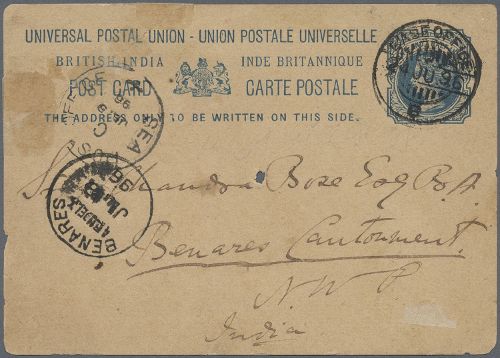 UNIVERSAL POSTAL UNION - UNION POSTALE UNIVERSELLE
BRITISH INDIA INDE BRITANNIQUE
POST CARD CARTE POSTALE
THE ADDRESS ONLY TO BE WRITTEN ON THIS SIDE.
SEA POST OFFICE
C
96
BENARES
96
Bose Esq B.A.
Benares Cantonment
N.W.P.
India